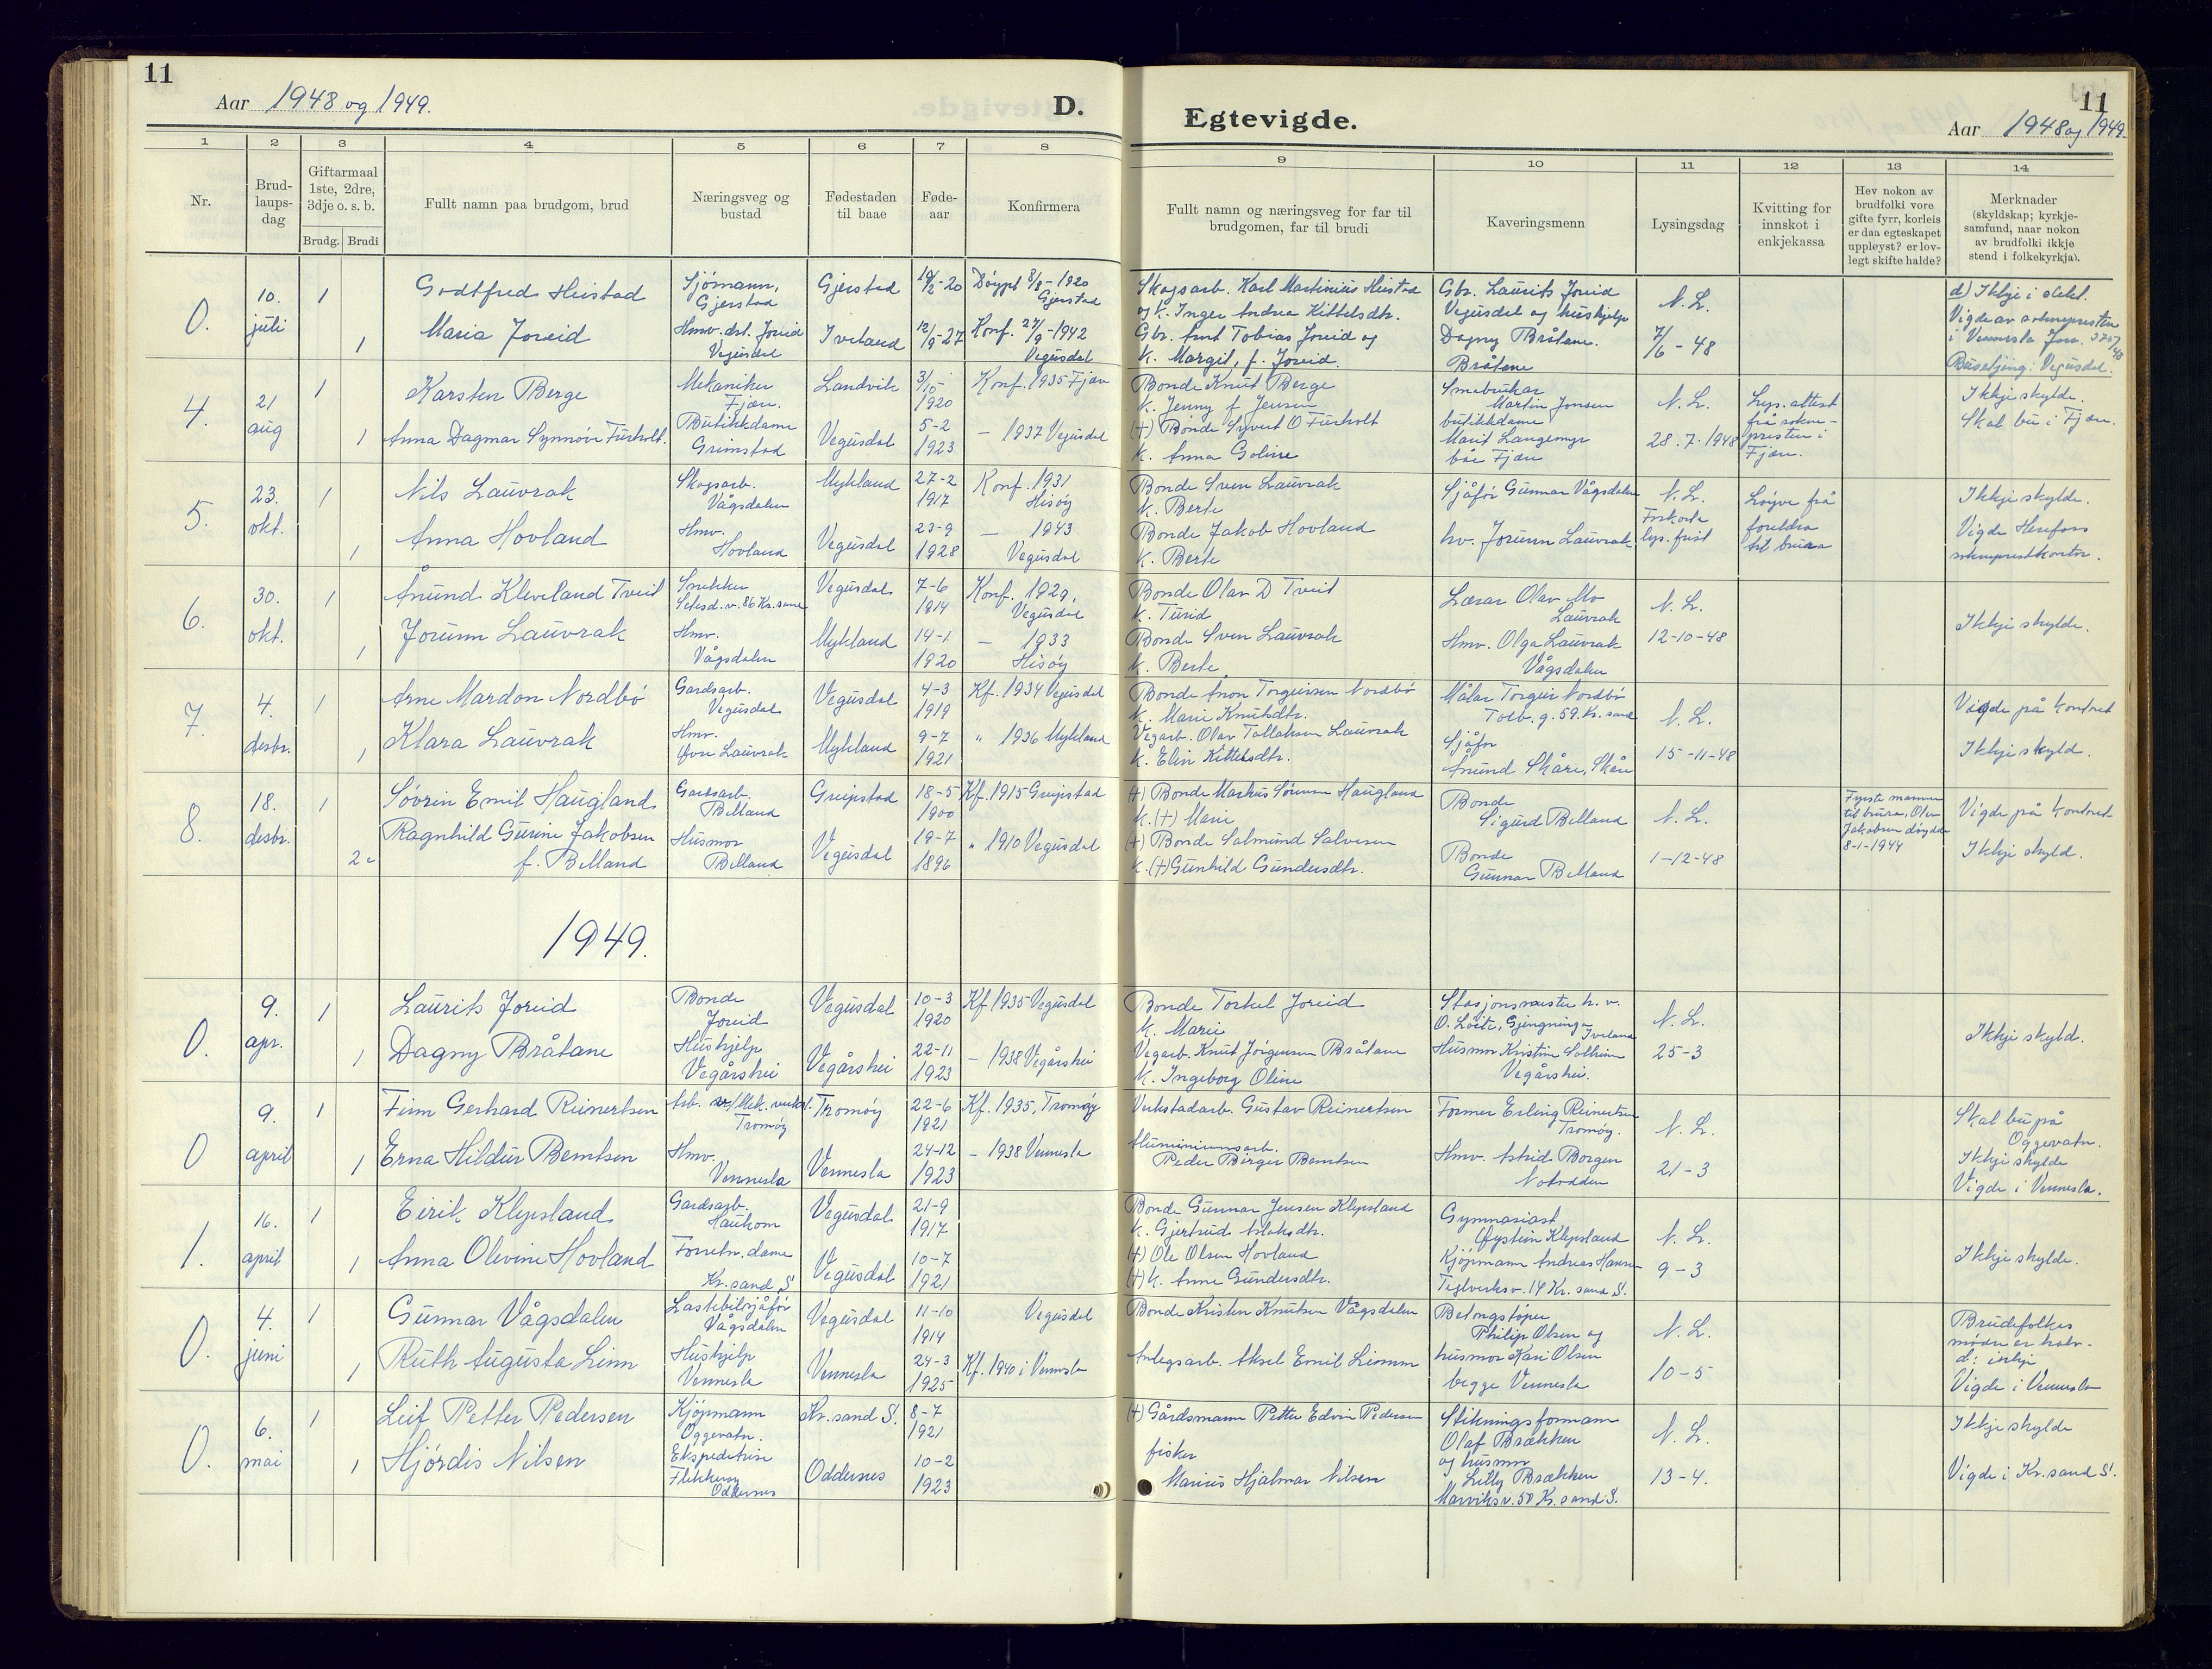 11
Aar 1948 og 1949.
D.
1 2 3 4 5 6 7 8
Nr.
Brud-
laups-
dag
Giftarmaal
1ste, 2dre,
3dje o. s. b.
Brudg. Brudi
Fullt namn paa brudgom, brud
Næringsveg og
bustad
Fødestaden
til baae
Føde-
aar
Konfirmera
0.
10.
juli
1
1
Godtfred Hustad
Maria Joreid
Sjömann,
Gjerstad
Hmv. dtr. Joreid
Vegusdal
Gjerstad
Iveland
12/9-27
Döypt 8/8-1920
Gjerstad
Konf. 27/9-1942
Vegusdal
4.
21
aug
1
1
Karsten Berge
Anna Dagmar Synnöve Furholt.
Mekaniker
Fjære.
Butikkdame
Grimstad
Landvik
Vegusdal
3/10
1920
5-2
1923
Konf. 1935 Fjære
— 1937 Vegusdal
5.
23.
okt.
1
1
Nils Lauvrak
Anna Hovland
Skogsarb.
Vågsdalen
Hmv.
Hovland
Mykland
Vegusdal
27-2
1917
23-9
1928
Konf. 1931
Hisöy
— 1943
Vegusdal
6.
30.
okt.
1
1
Ånund Kleveland Tveit
Jorunn Lauvrak
Snekker
Setesd.v. 86 Kr.sand
Hmv.
Vågsdalen
Vegusdal
Mykland
7-6
1914
14-1
1920
Konf. 1929,
Vegusdal
— 1933
Hisöy
7.
4.
desbr.
1
1
Arne Mardon Nordbö
Klara Lauvrak
Gardsarb.
Vegusdal
Hmv.
Øvre Lauvrak
Vegusdal
Mykland
4-3
1919
9-7
1921
Kf. 1934 Vegusdal
" 1936 Mykland
8.
18.
desbr.
1
2
Sövrin Emil Haugland
Ragnhild Gurine Jakobsen
f. Belland
Gardsarb.
Belland
Husmor
Belland
Greipstad
Vegusdal
18-5
1900
19-7
1896
Kf. 1915 Greipstad
" 1910 Vegusdal
1949.
0.
9.
apr.
1
1
Laurits Joreid
Dagny Bråtane
Bonde
Joreid
Hushjelp
Vegårshei
Vegusdal
Vegårshei
10-3
1920
22-11
1923
Kf 1935 Vegusdal
— 1938 Vegårshei
0
9.
april
1
1
Finn Gerhard Reinertsen
Erna Hildur Berntsen
Arb. Mek. verkst.
Tromöy
Hmv.
Vennesla
Tromöy
Vennesla
22-6
1921
24-12
1923
Kf. 1935, Tromöy
— 1938 Vennesla
1.
16.
april
1
1
Eirik Klepsland
Anna Olevine Hovland
Gardsarb.
Haukom
Forretn. dame
Kr. sand S
Vegusdal
Vegusdal
21-9
1917
10-7
1921
0.
4.
juni
1
1
Gunnar Vågsdalen
Ruth Augusta Linn
Lastebilsjåför
Vågsdalen
Hushjelp
Vennesla
Vegusdal
Vennesla
11-10
1914
24-3
1925
Vegusdal
Kf. 1940 i Vennesla
0.
6.
mai
1
1
Leif Petter Pedersen
Hjördis Nilsen
Kjöpmann
Oggevatn.
Ekspeditrise
Flekkeröy
Oddernes
Kr. sand S.
Oddernes
8-7
1921
10-2
1923
Egtevigde.
11
Aar 1948 og 1949.
9 10 11 12 13 14
Fullt namn og næringsveg for far til
brudgomen, far til brudi
Kaveringsmenn
Lysingsdag
Kvitting for
innskot i
enkjekassa
Hev nokon av
brudfolki vore
gifte fyrr, korleis
er daa egteskapet
uppløyst? er lov-
legt skifte halde?
Merknader
(skyldskap; kyrkje-
samfund, naar nokon
av brudfolki ikkje
stend i folkekyrkja).
Skogsarb. Karl Martinius Hustad
og k. Inger Andrea Kittelsdtr.
Gbr. Arnt Tobias Joreid og
k. Margit, f. Joreid.
Gbr. Laurits Joreid
Vegusdal og hushjelp
Dagny Bråtane.
Bråtene
N. L.
7/6-48
d) Ikkje i slekt.
Vigde av sokneprest
i Vennesla
Busetjing: Vegusdal.
Bonde Knut Berge
k. Jenny f Jensen
(+) Bonde Syvert O Furholt
k. Anna Goline
Småbrukar
Martin Jonsen
butikkdame
Marit Langemyr
båe Fjære
N. L.
28.7.1948
Lys. attest
frå sokne-
presten i
Fjære.
Ikkje skylde.
Skal bu i Fjære.
Bonde Sven Lauvrak
k. Berte
Bonde Jakob Hovland
k. Berte
Sjåför Gunnar Vågsdalen
hv. Jorunn Lauvrak
N. L.
Forkorta
lys. frist
Löyve frå
foreldra
til brura
Ikkje skylde.
Vigde Herefoss
sokneprestkontor.
Bonde Olav D Tveit
k. Turid
Bonde Sven Lauvrak
k. Berte
Lærar Olav Mo
Lauvrak
Hmv. Olga Lauvrak
Vågsdalen
N. L.
12-10-48
Ikkje skylde.
Bonde Anon Torgeirsen Nordbö
k. Marie Knutsdtr.
Vegarb. Olav Tallaksen Lauvrak
k. Elin Kittelsdtr.
Målar Torgeir Nordbö
Tolb. g. 59. Kr. sand
Sjåför
Ånund Skåre, Skåre
N. L.
15-11-48
Vigde på kontoret
Ikkje skyld.
(+) Bonde Markus Sörensen Haugland
k. (+) Marie
(+) Bonde Salmund Salvesen
k. (+) Gunhild Gundersdtr.
Bonde
Sigurd Belland
Bonde
Gunnar Belland
N. L.
1-12-48
Fyrste mannen
til brura, Olav
Jakobsen döydde
8-1-1944
Vigde på kontoret
Ikkje skyld.
Bonde Torkel Joreid
k. Marie
Vegarb. Knut Jörgensen Bråtane
k. Ingeborg Oline
Stasjonsmester h. v.
O. Löite, Gjengning
Iveland
Husmor Kristine Solheim
Vegårshei.
N. L.
25-3
Ikkje skyld.
Verkstadarb. Gustav Reinertsen
Aluminiumsarb.
Peder Börger Berntsen
Former Erling Reinertsen
Tromöy.
Hmv. Astrid Borgen
Notodden
N. L.
21-3
Skal bu på
Oggevatn.
Ikkje skylde
Vigde i Vennesla.
Bonde Gunnar Jensen Klepsland
k. Gjertrud Aslaksdtr.
(+) Ole Olsen Hovland
(+) k. Anne Gundersdtr.
Gymnasiast
Øystein Klepsland
Kjöpmann Andreas Hansen
Teglverksv. 14 Kr. sand S.
N. L.
9-3
Ikkje skylde.
Bonde Kristen Knutsen Vågsdalen
Anlegsarb. Aksel Emil Linn
Betongstöper
Philip Olsen og
husmor Kari Olsen
begge Vennesla
N. L.
10-5
Brudefolkes
mödre er halv-
Vigde i Vennesla
(+) Gårdsmann Petter Edvin Pedersen
fisker
Marius Hjalmar Nilsen
Stikningsformann
Olaf Brækken
og husmor
Lilly Brækken
Marviksv. 50 Kr. sand S.
N. L.
13-4.
Ikkje skylde
Vigde i Kr. sand S.